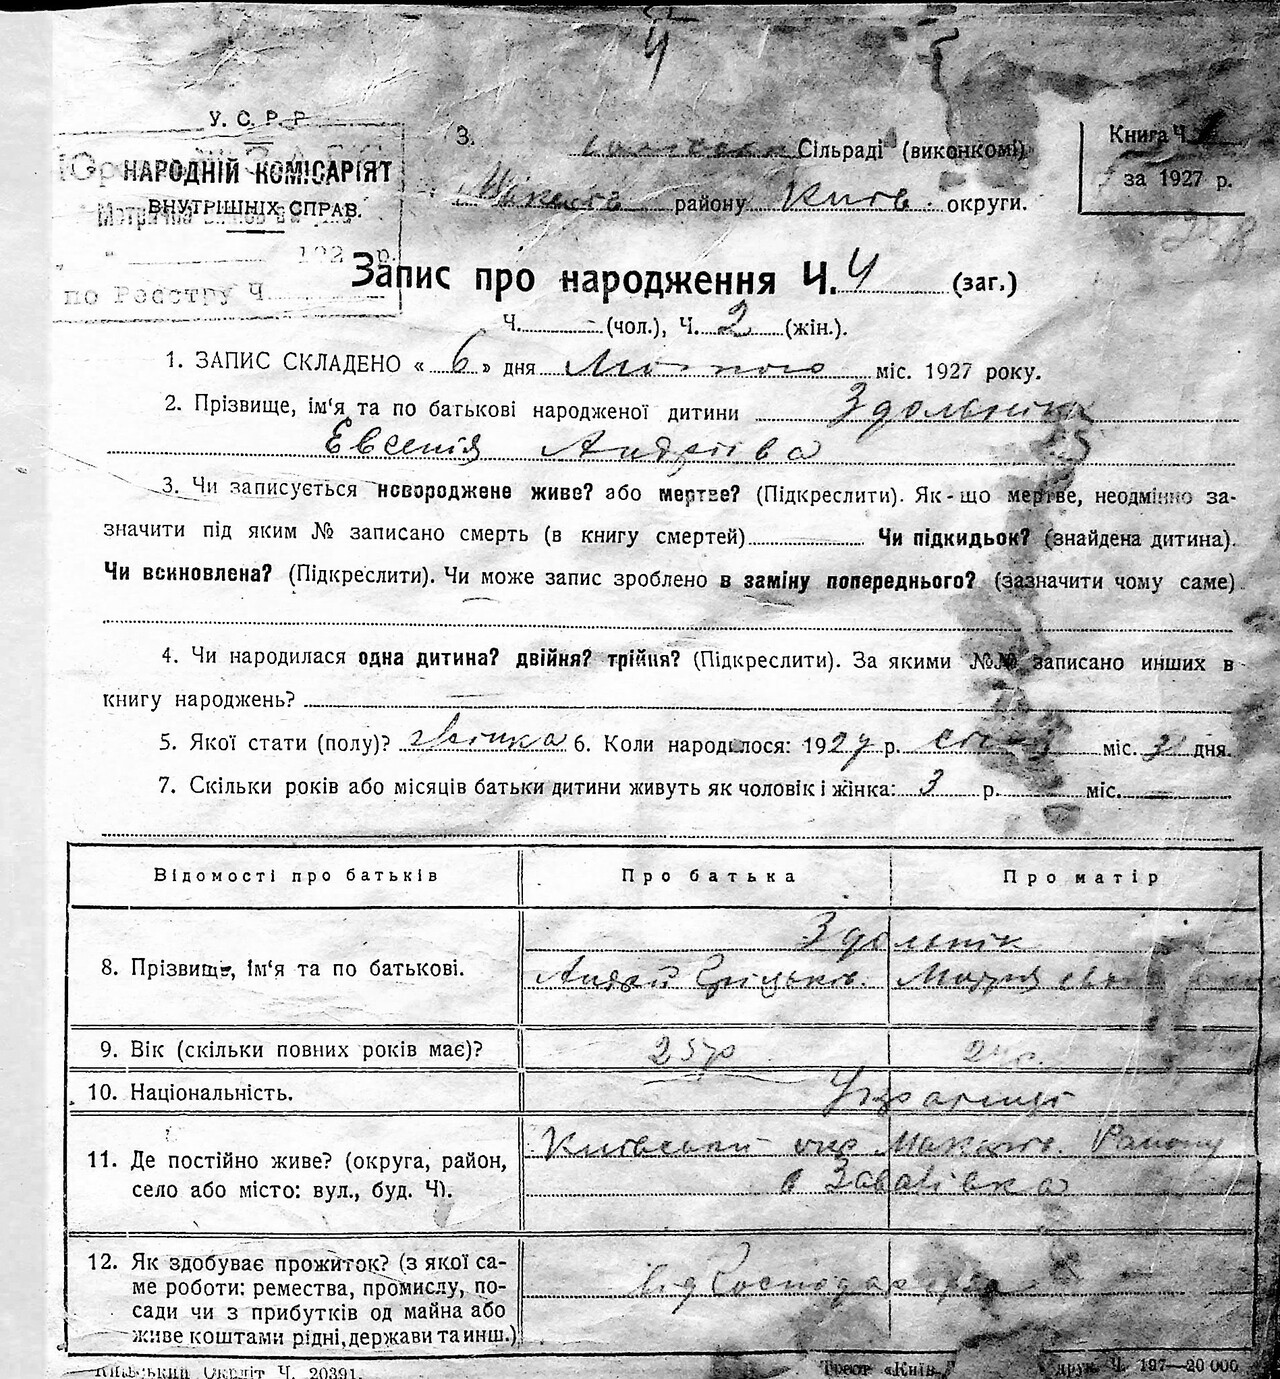 4
У. С. Р. Р
НАРОДНІЙ КОМІСАРІЯТ
ВНУТРІШНІХ СПРАВ.
192 р.
по Реєстру Ч.
З. Сільраді (виконкомі)
району Київ. округи.
Книга Ч.
за 1927 р.
Запис про народження Ч. 4 (заг.)
Ч. (чол.), Ч. 2 (жін.).
1. ЗАПИС СКЛАДЕНО « 6 » дня Лютого міс. 1927 року.
2. Прізвище, ім‘я та по батькові народженої дитини Здольнік
Евгенія Андріїва
3. Чи записується новороджене живе? або мертве? (Підкреслити). Як-що мертве, неодмінно за-
значити під яким № записано смерть (в книгу смертей) Чи підкидьок? (знайдена дитина).
Чи всиновлена? (Підкреслити). Чи може запис зроблено в заміну попереднього? (зазначити чому саме)
4. Чи народилася одна дитина? двійня? трійня? (Підкреслити). За якими №№ записано инших в
книгу народжень?
5. Якої стати (полу)? жінка 6. Коли народилося: 1927 р. міс. дня.
7. Скільки років або місяців батьки дитини живуть як чоловік і жінка: 3 р. міс. —
Відомості про батьків Про батька Про матір
8. Прізвище, ім‘я та по батькові. Здольнік
Андрій Грицьков. Мотря
9. Вік (скільки повних років має)? 25 р
10. Національність. Українці
11. Де постійно живе? (округа, район, Київський окр Макарів. Району
село або місто: вул., буд. Ч). с Завалівка
12. Як здобуває прожиток? (з якої са-
ме роботи: ремества, промислу, по- від Господарства
сади чи з прибутків од майна або
живе коштами рідні, держави та инш.)
Київський Окрліт Ч. 20391. Трест «Київ друк Ч. 197—20 000